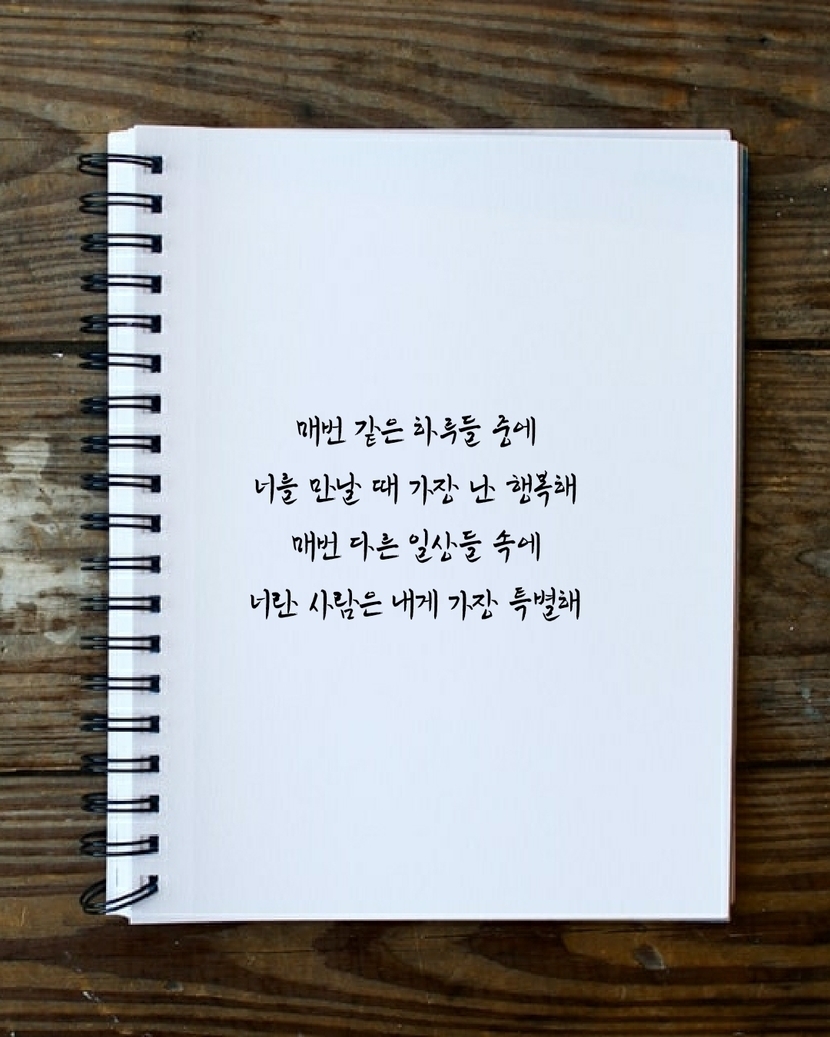 매번 같은 하루들 중에
너를 만날 때 가장 난 행복해
매번 다른 일상들 속에
너란 사람은 내게 가장 특별해